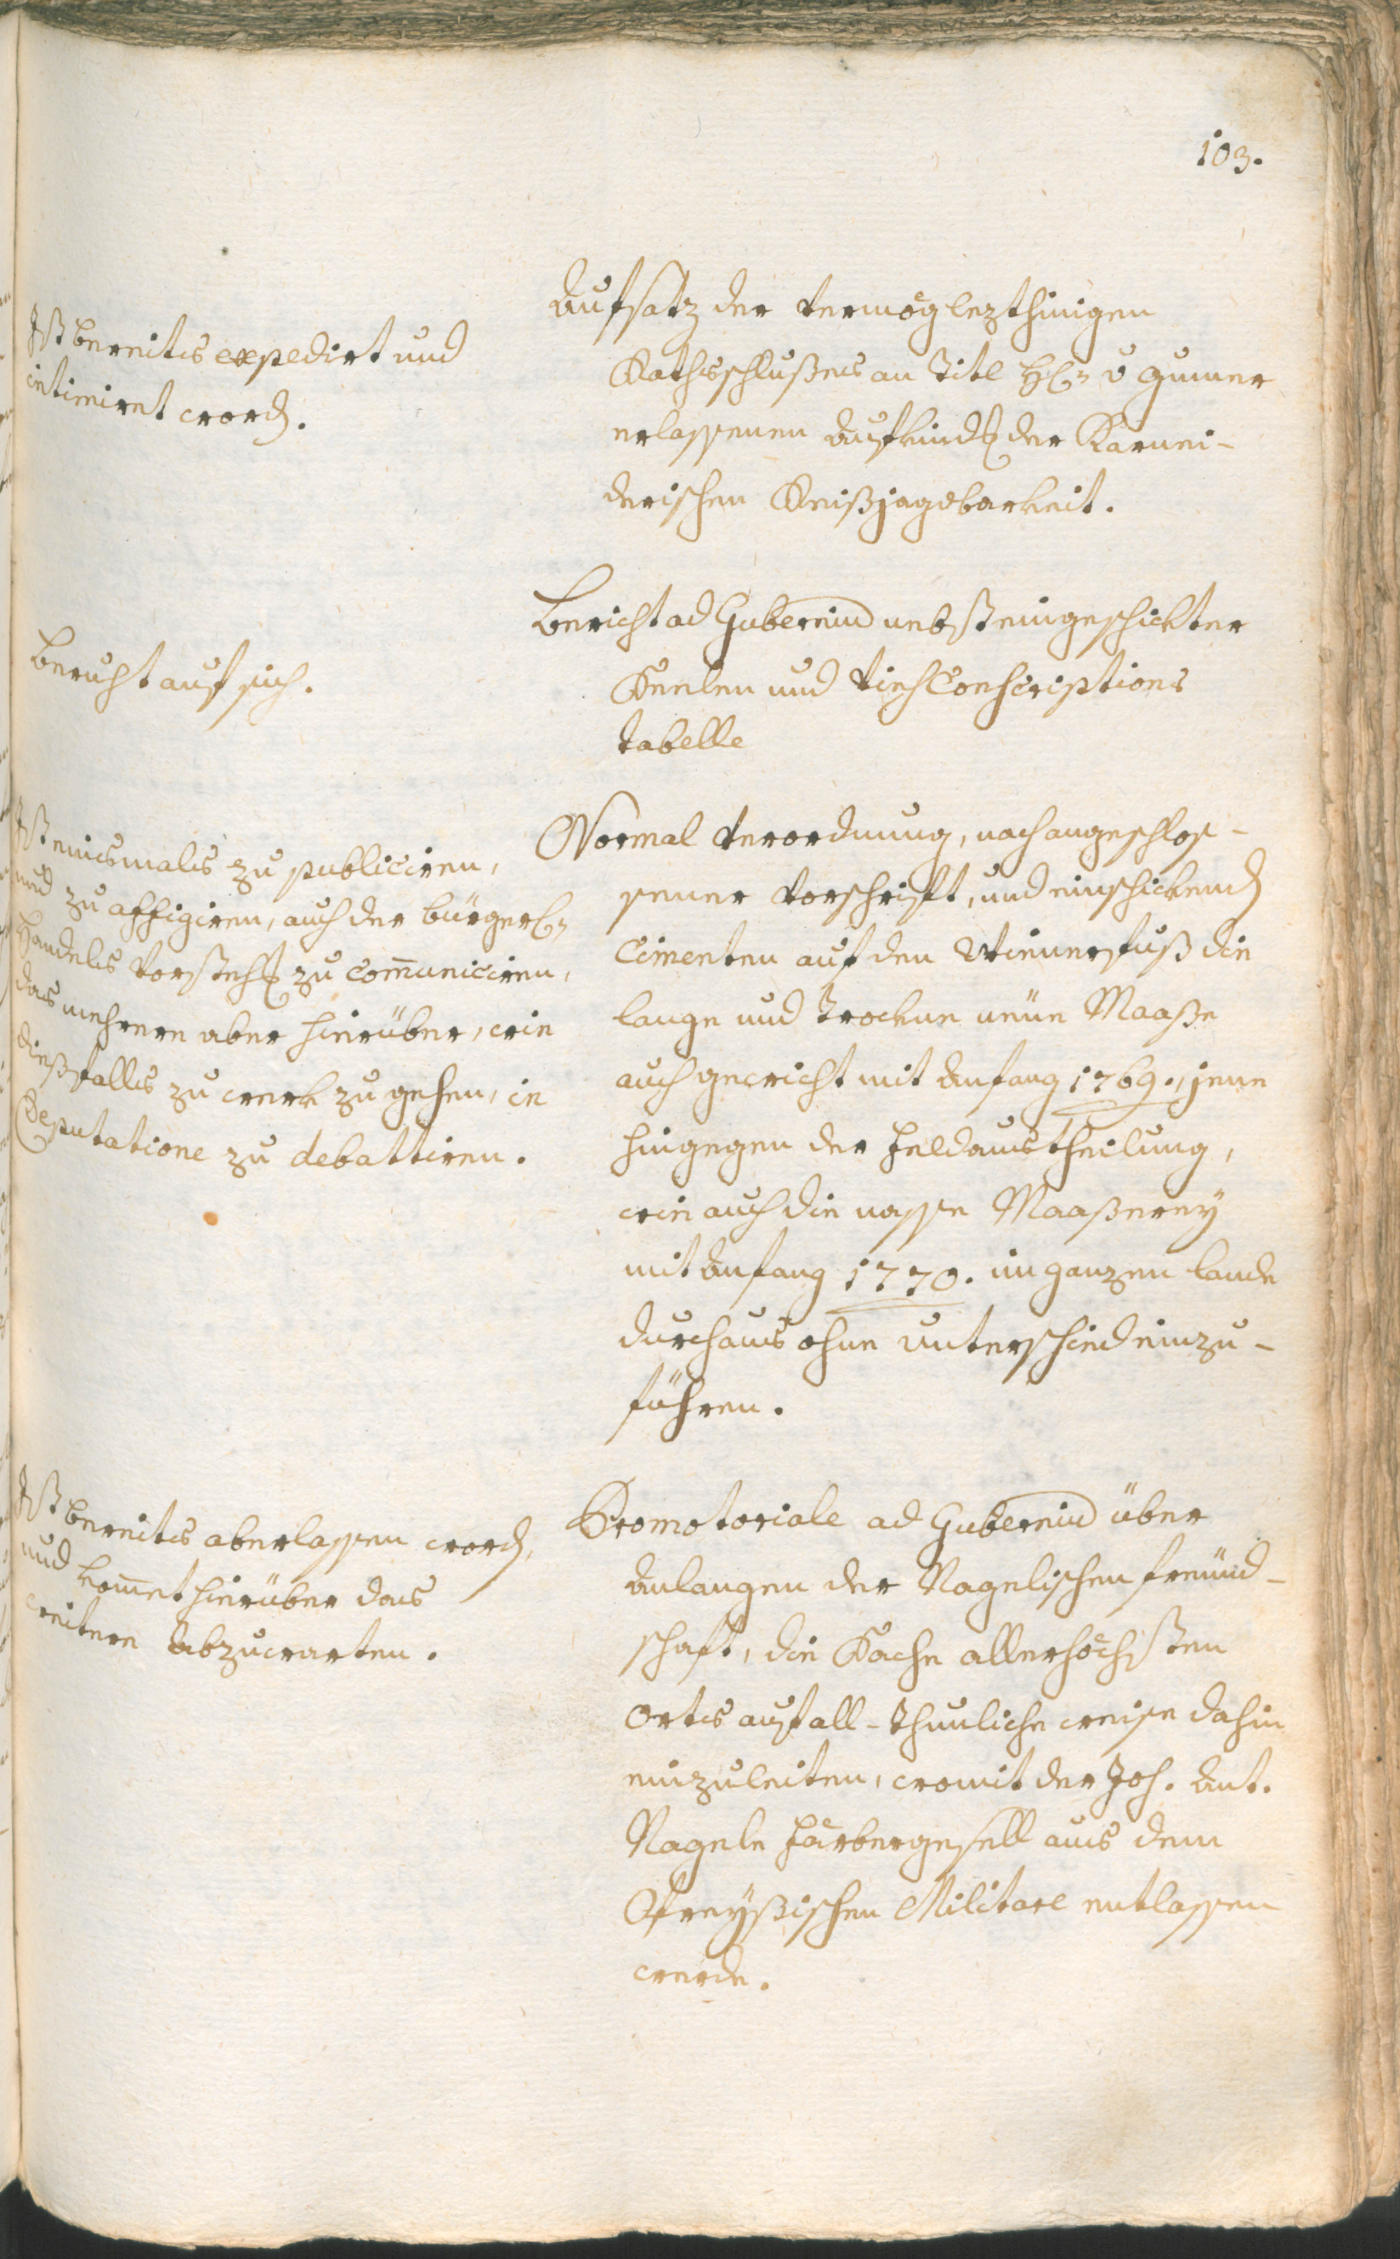 103.
Ist bereits expedirt und
intimiret word.
Aufsatz der vermög lezthinigen
Rathsschlußes an Titl H: v Gumer
erlassenen Aufkind der Karnei-
derischen Reißjagdbarkeit.
Beruht auf sich.
Bericht ad Gubernium nebst eingeschickter
Seelen und Vieh Conscriptions
tabelle
Ist eines mals zu publiciren,
und zu affigiren, auch der bürgerl:
Handels Vorsteh zu com̅uniciren,
das mehrere aber hierüber, wie
dießfalls zu werk zu gehen, in
Deputatione zu debattiren.
Normal Verordnung, nach angeschlos-
sener Vorschrift, und einschickend
Cimenten auf den Wienerfuß die
lange und Trockne neüe Maaße
auch gewicht mit Anfang 1769., jene
hingegen der Feldaustheilung,
wie auch die nasse Maaßerey
mit Anfang 1770. im ganzen Lande
durchaus ohne Unterschied einzu-
führen.
Ist bereits aberlassen word,
und kom̅et hierüber das
weitere Abzuwarten.
Promotoriale ad Gubernium über
Anlangen der Nagelischen freünd-
schaft, die Sache allerhöchsten
Orts auf all-Thunliche weise dahin
einzuleiten, womit der Joh. Ant.
Nagele Färbergesell aus dem
Preyßischen Militare entlassen
werde.